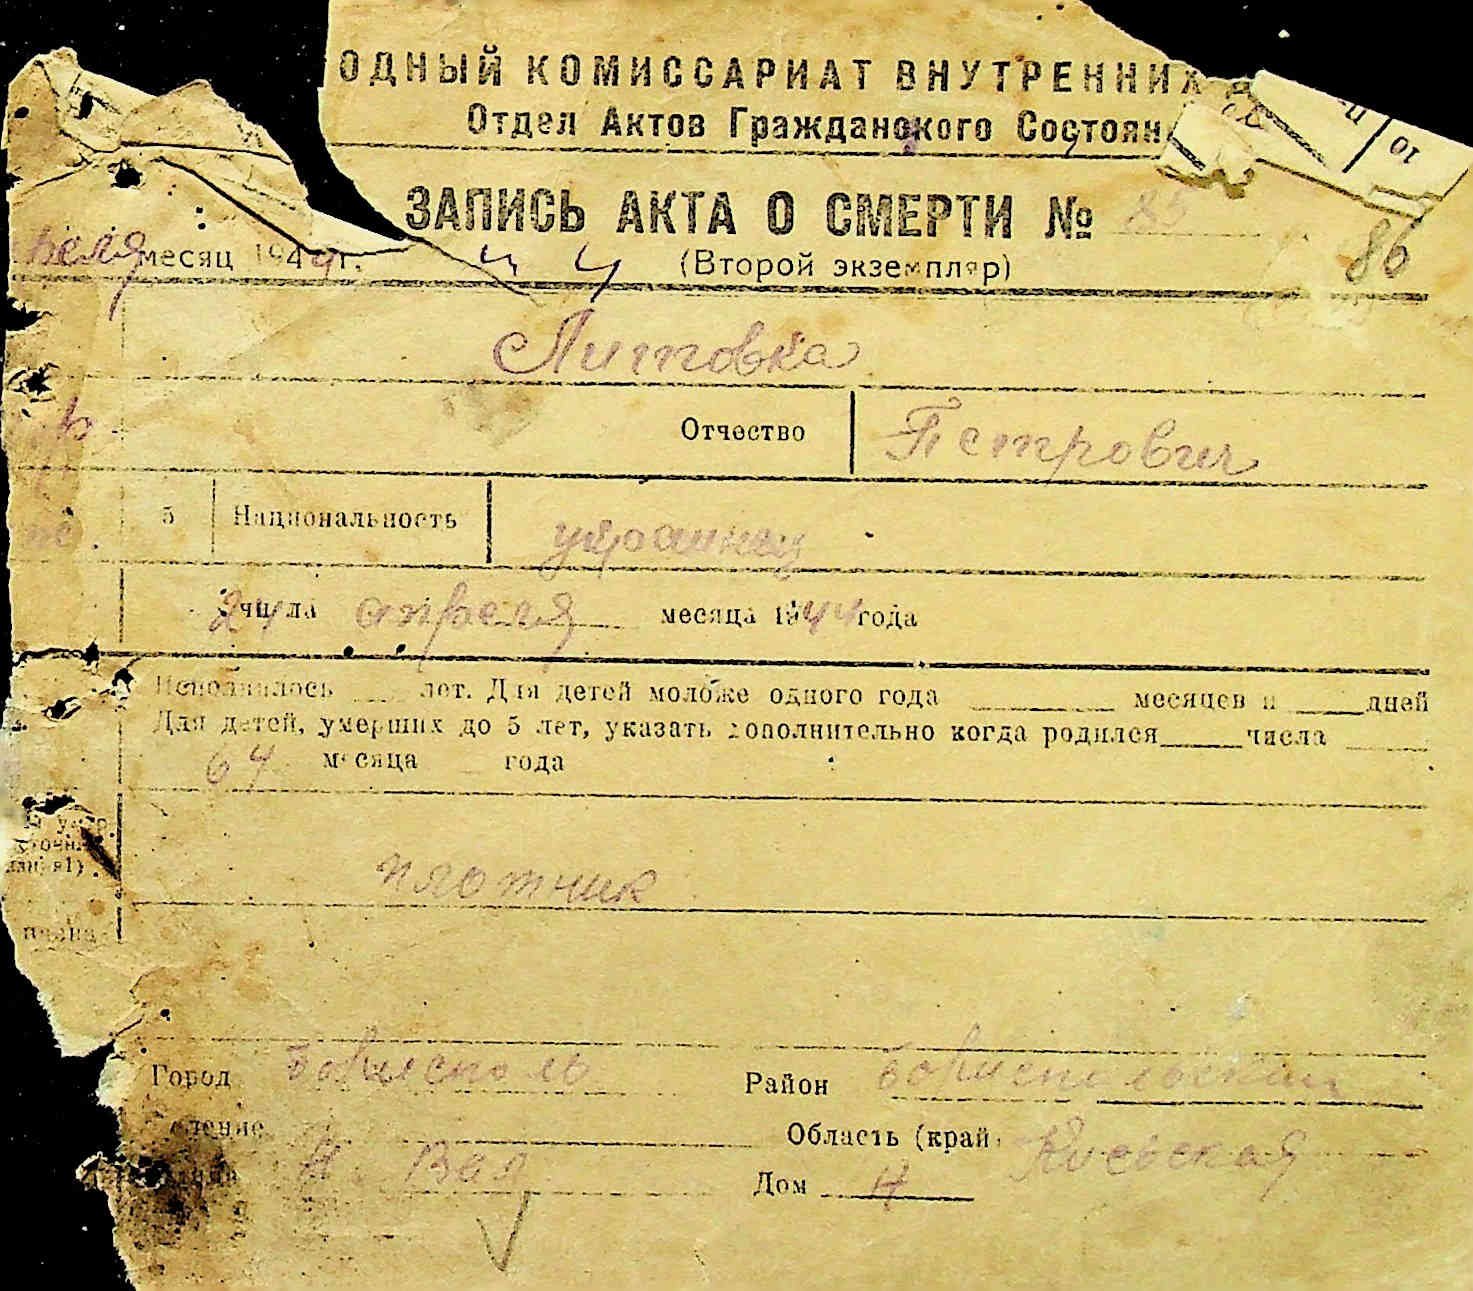 ОДНЫЙ КОМИССАРИАТ ВНУТРЕННИХ
Отдел Актов Гражданского Состоян
ЗАПИСЬ АКТА О СМЕРТИ № 85
86
реля месяц 1944 г.
(Второй экземпляр)
Литовка
Отчество Петрович
5 Национальность украинец
24 числа апреля месяца 1944 года
Исполнилось лет. Для детей моложе одного года месяцев и дней
Для детей, умерших до 5 лет, указать дополнительно когда родился числа
64 месяца года
плотчик
Город Борисполь Район Бориспольский
еление Область (край) Киевская
Н. Вал Дом Н
10